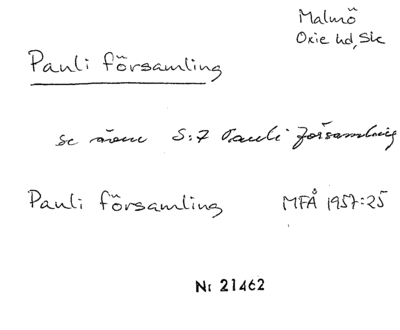 Malmö
Oxie hd, Sk
Pauli församling
se även S:t Pauli församling
Pauli församling MFÅ 1957:25
Nr 21462